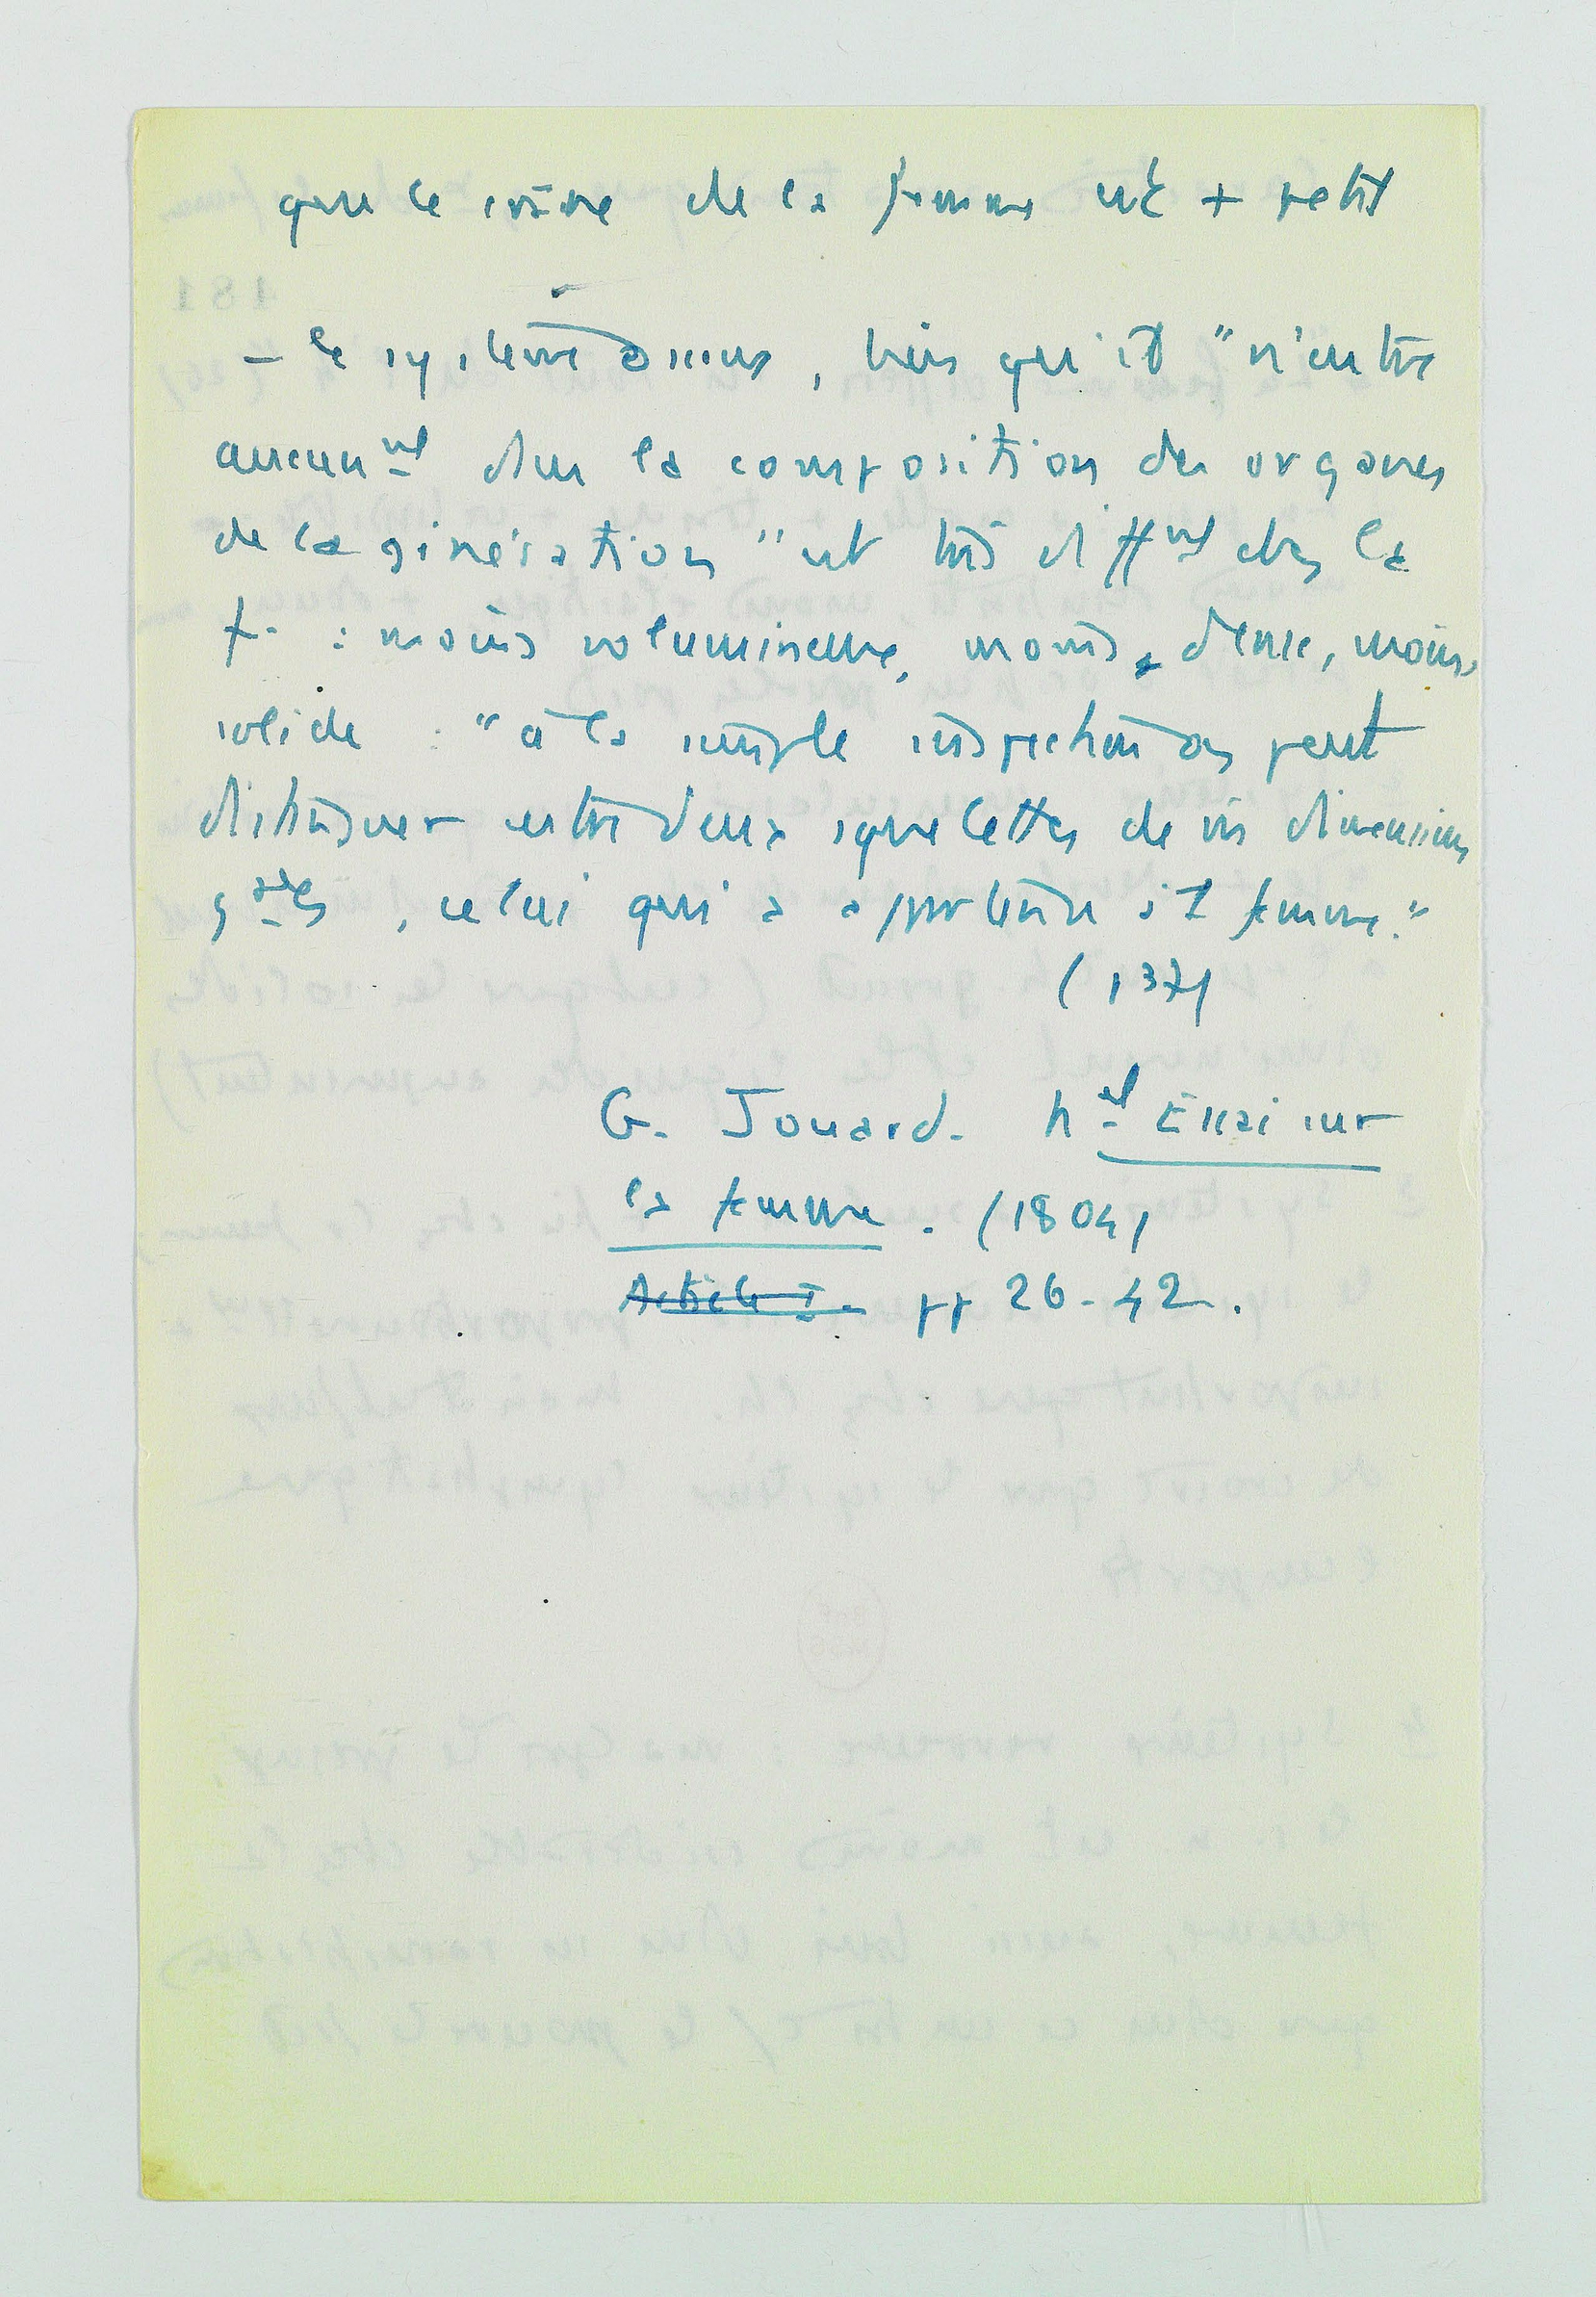 que le crâne de la femme est + petit
– le système osseux, bien qu'il "n'entre
aucunnt dans la composition des organes
de la génération" est très diffnt chez la
f. : moins volumineuse, moins dense, moins
solide : "à la simple inspection on peut
distinguer entre deux squelettes de ms dimensions
gales, celui qui a appartenu à 1 femme."
(137)
G. Jouard. Nel Essai sur
la femme. (1804)
Article I. pp 26-42.